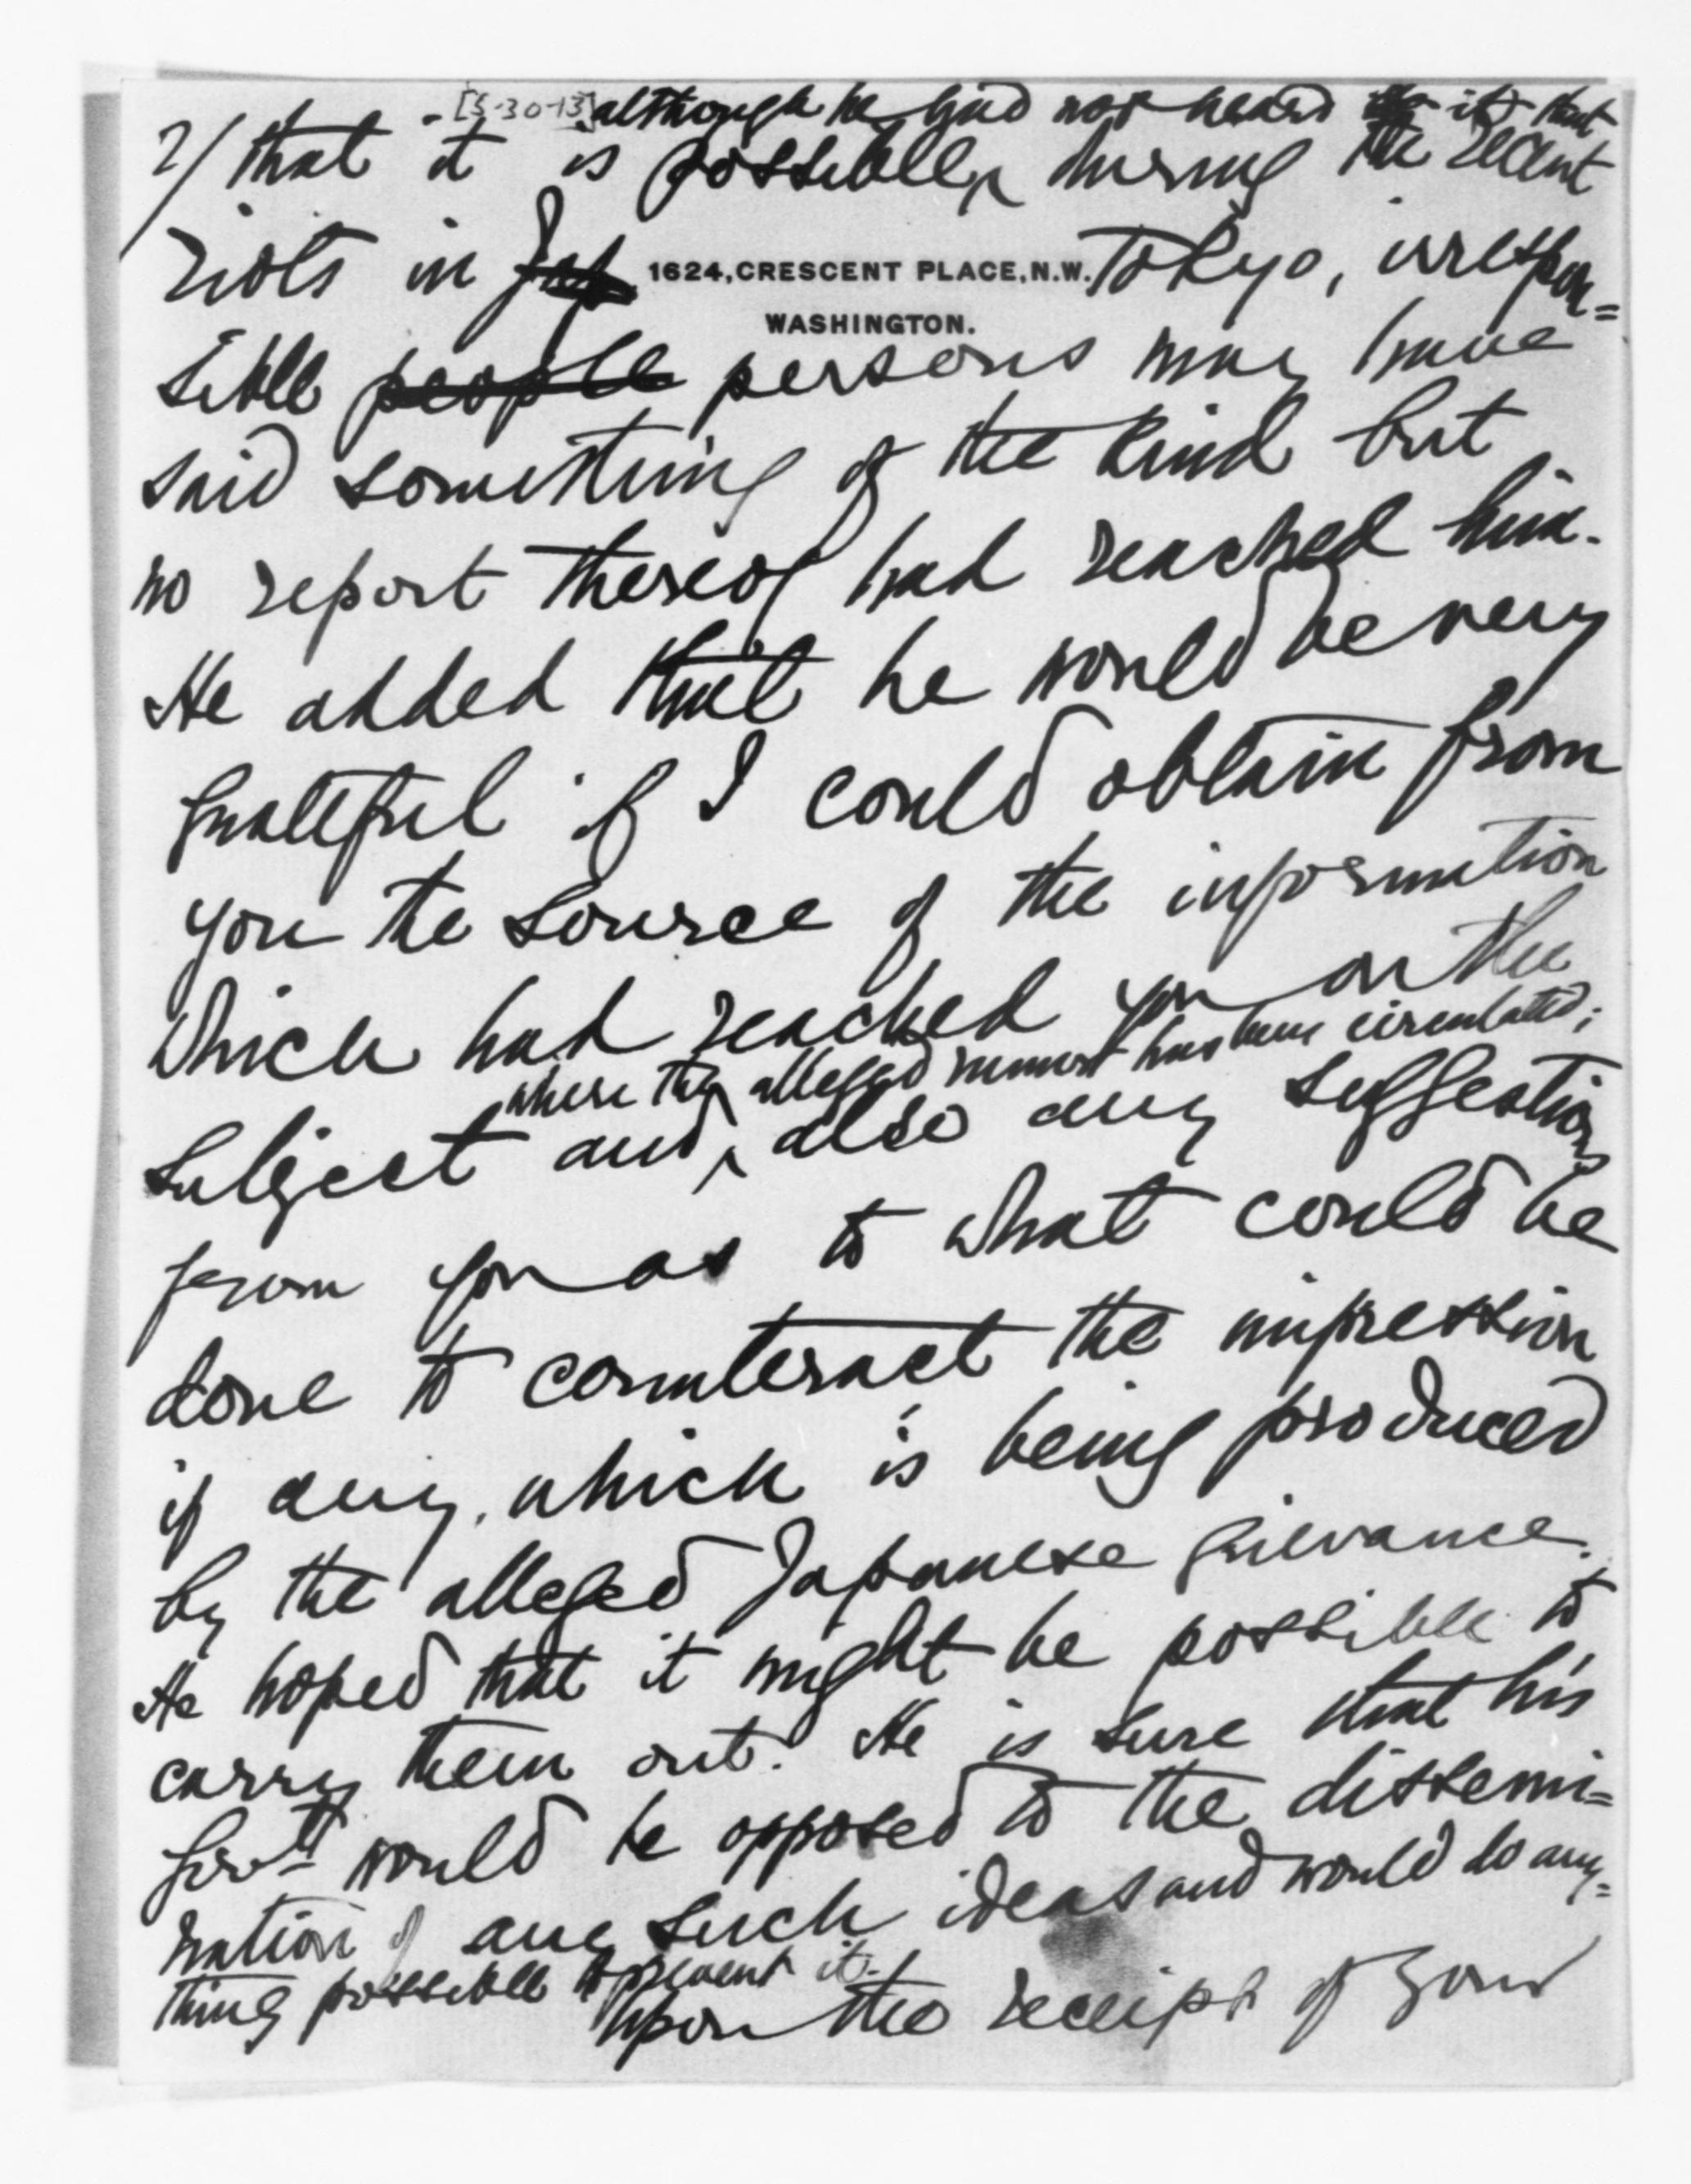 [5-30-13] although he had not heard it that
2/ that it is possible, during the recent
riots in Jap Tokyo, irrespon=
1624, CRESCENT PLACE, N.W.
WASHINGTON.
sible people persons may have
said something of the kind but
no report thereof had reached him.
He added that he would be very
grateful if I could obtain from
you the source of the information
which had reached you on the
where the alleged rumour has been circulated;
subject and, also any suggestions
from you as to what could be
done to counteract the impression
if any, which is being produced
by the alleged Japanese grievance.
He hoped that it might be possible to
carry them out. He is sure that his
Govt would be opposed to the dissemi=
nation of any such ideas and would do any=
thing possible to prevent it.
Upon the receipt of your